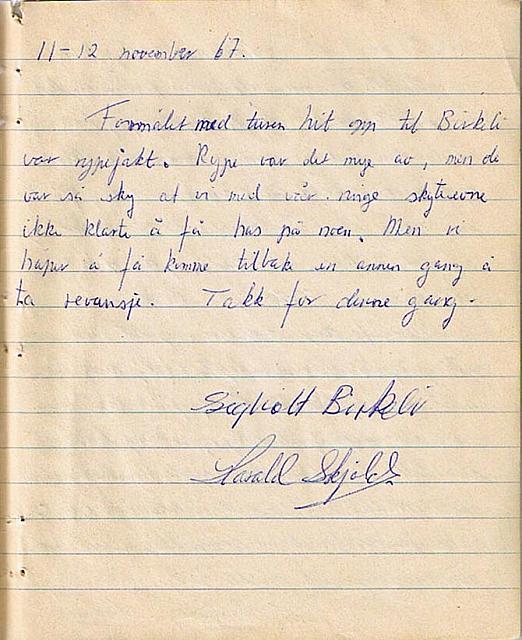 11-12 november 67.
Formålet med turen hit opp til Birkeli
var rypejakt. Rype var det mye av, men de
var så sky at vi med vår ringe skyteevne
ikke klarte å få has på noen. Men vi
håper å få komme tilbake en annen gang å
ta revansje. Takk for denne gang.
Sigholt Birkeli
Harald Skjold